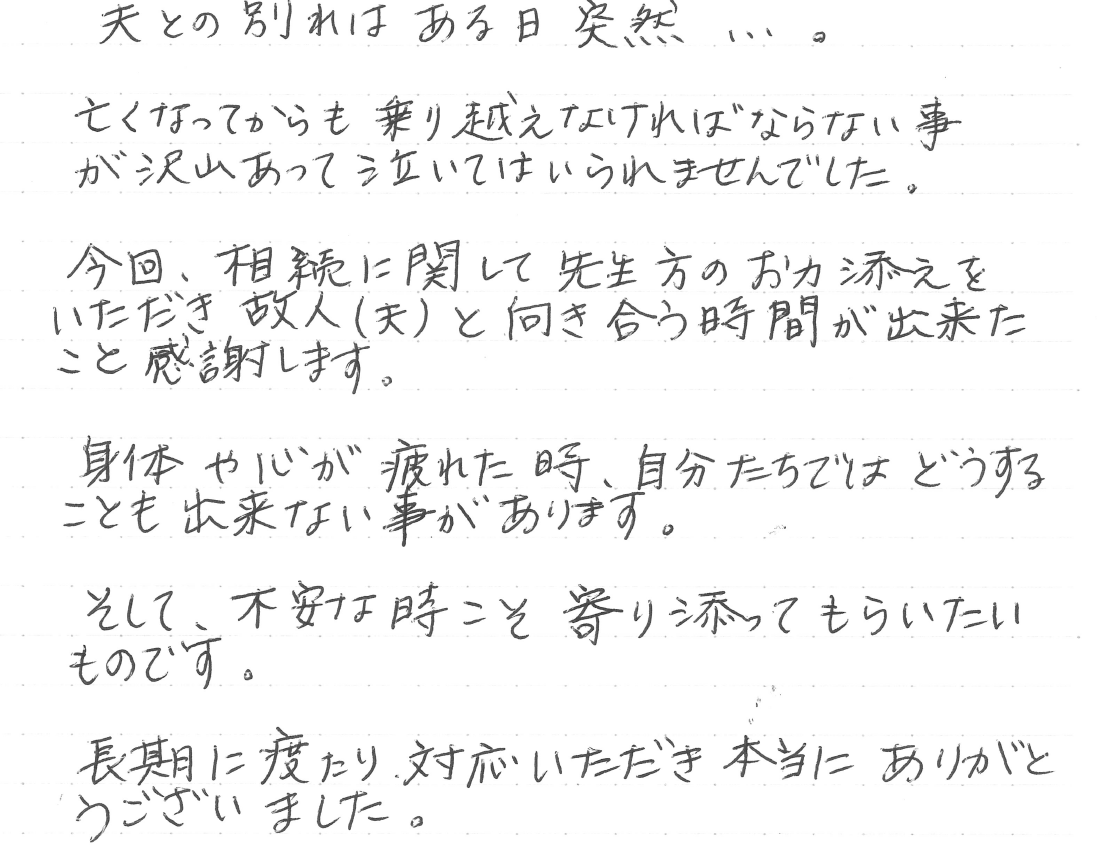 夫との別れは ある日 突然 … 。
亡くなってからも 乗り越えなければならない事
が沢山あって泣いてはいられませんでした。
今回、相続に関して 先生方のお力添えを
いただき 故人(夫)と向き合う時間が出来た
こと 感謝します。
身体 や心が 疲れた時、自分たちでは どうする
ことも出来ない事があります。
そして、不安な時こそ 寄り添ってもらいたい
ものです。
長期に度たり 対応いただき 本当に ありがと
うございました。